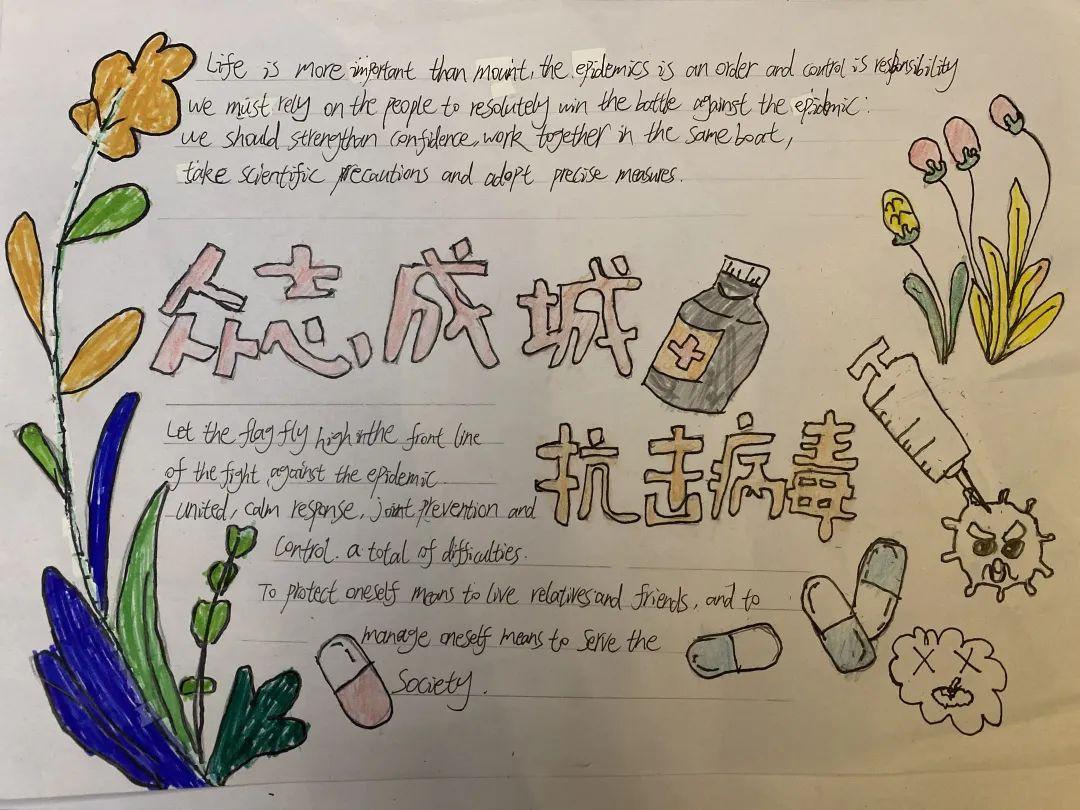 Life is more important than mount, the epidemics is an order and control is responsibility
we must rely on the people to resolutely win the battle against the epidemic.
we should strengthan confidence, work together in the same boat,
take scientific precautions and adopt precise measures.
众志成城
Let the flag fly high in the front line
of the fight, against the epidemic
united, calm response, joint prevention and
抗击病毒
control. a total of difficulties.
To protect oneself means to live relatives and friends, and to
manage oneself means to serve the
Society.